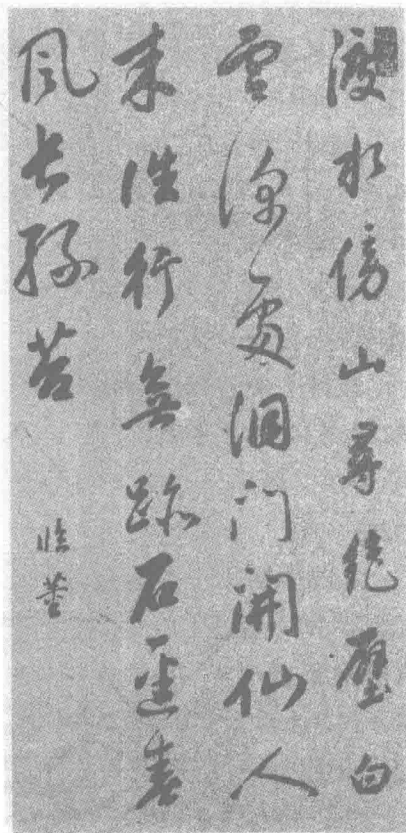 渡水傍山尋絕壁白
雲深處洞門開仙人
來往行無跡石逕春
風長綠苔
臨董